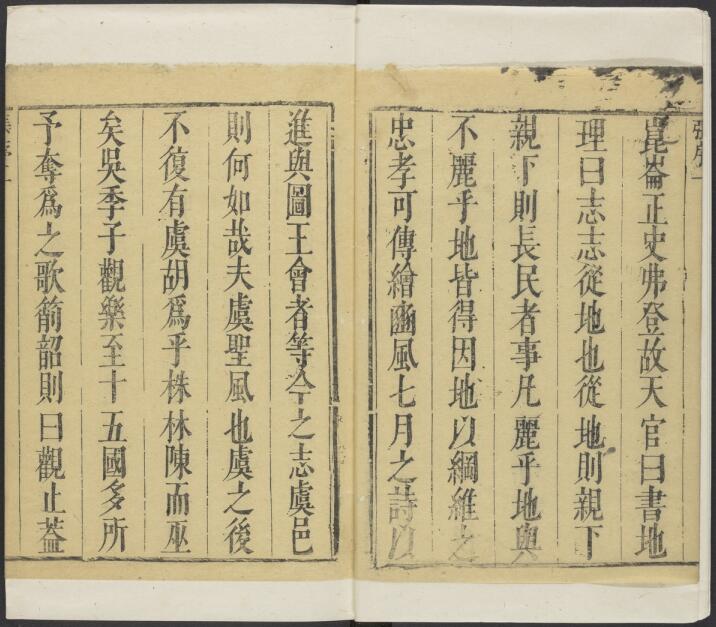 崑崙正史弗登故天官曰書地
理曰志志從地也從地則親下
親下則長民者事凡麗乎地與
不麗乎地皆得因地以綱維之
忠孝可傳繪豳風七月之詩以
進與圖王會者等今之志虞邑
則何如哉夫虞聖風也虞之後
不復有虞胡為乎株林陳而巫
矣吳季子觀樂至十五國多所
予奪爲之歌箾韶則曰觀止蓋